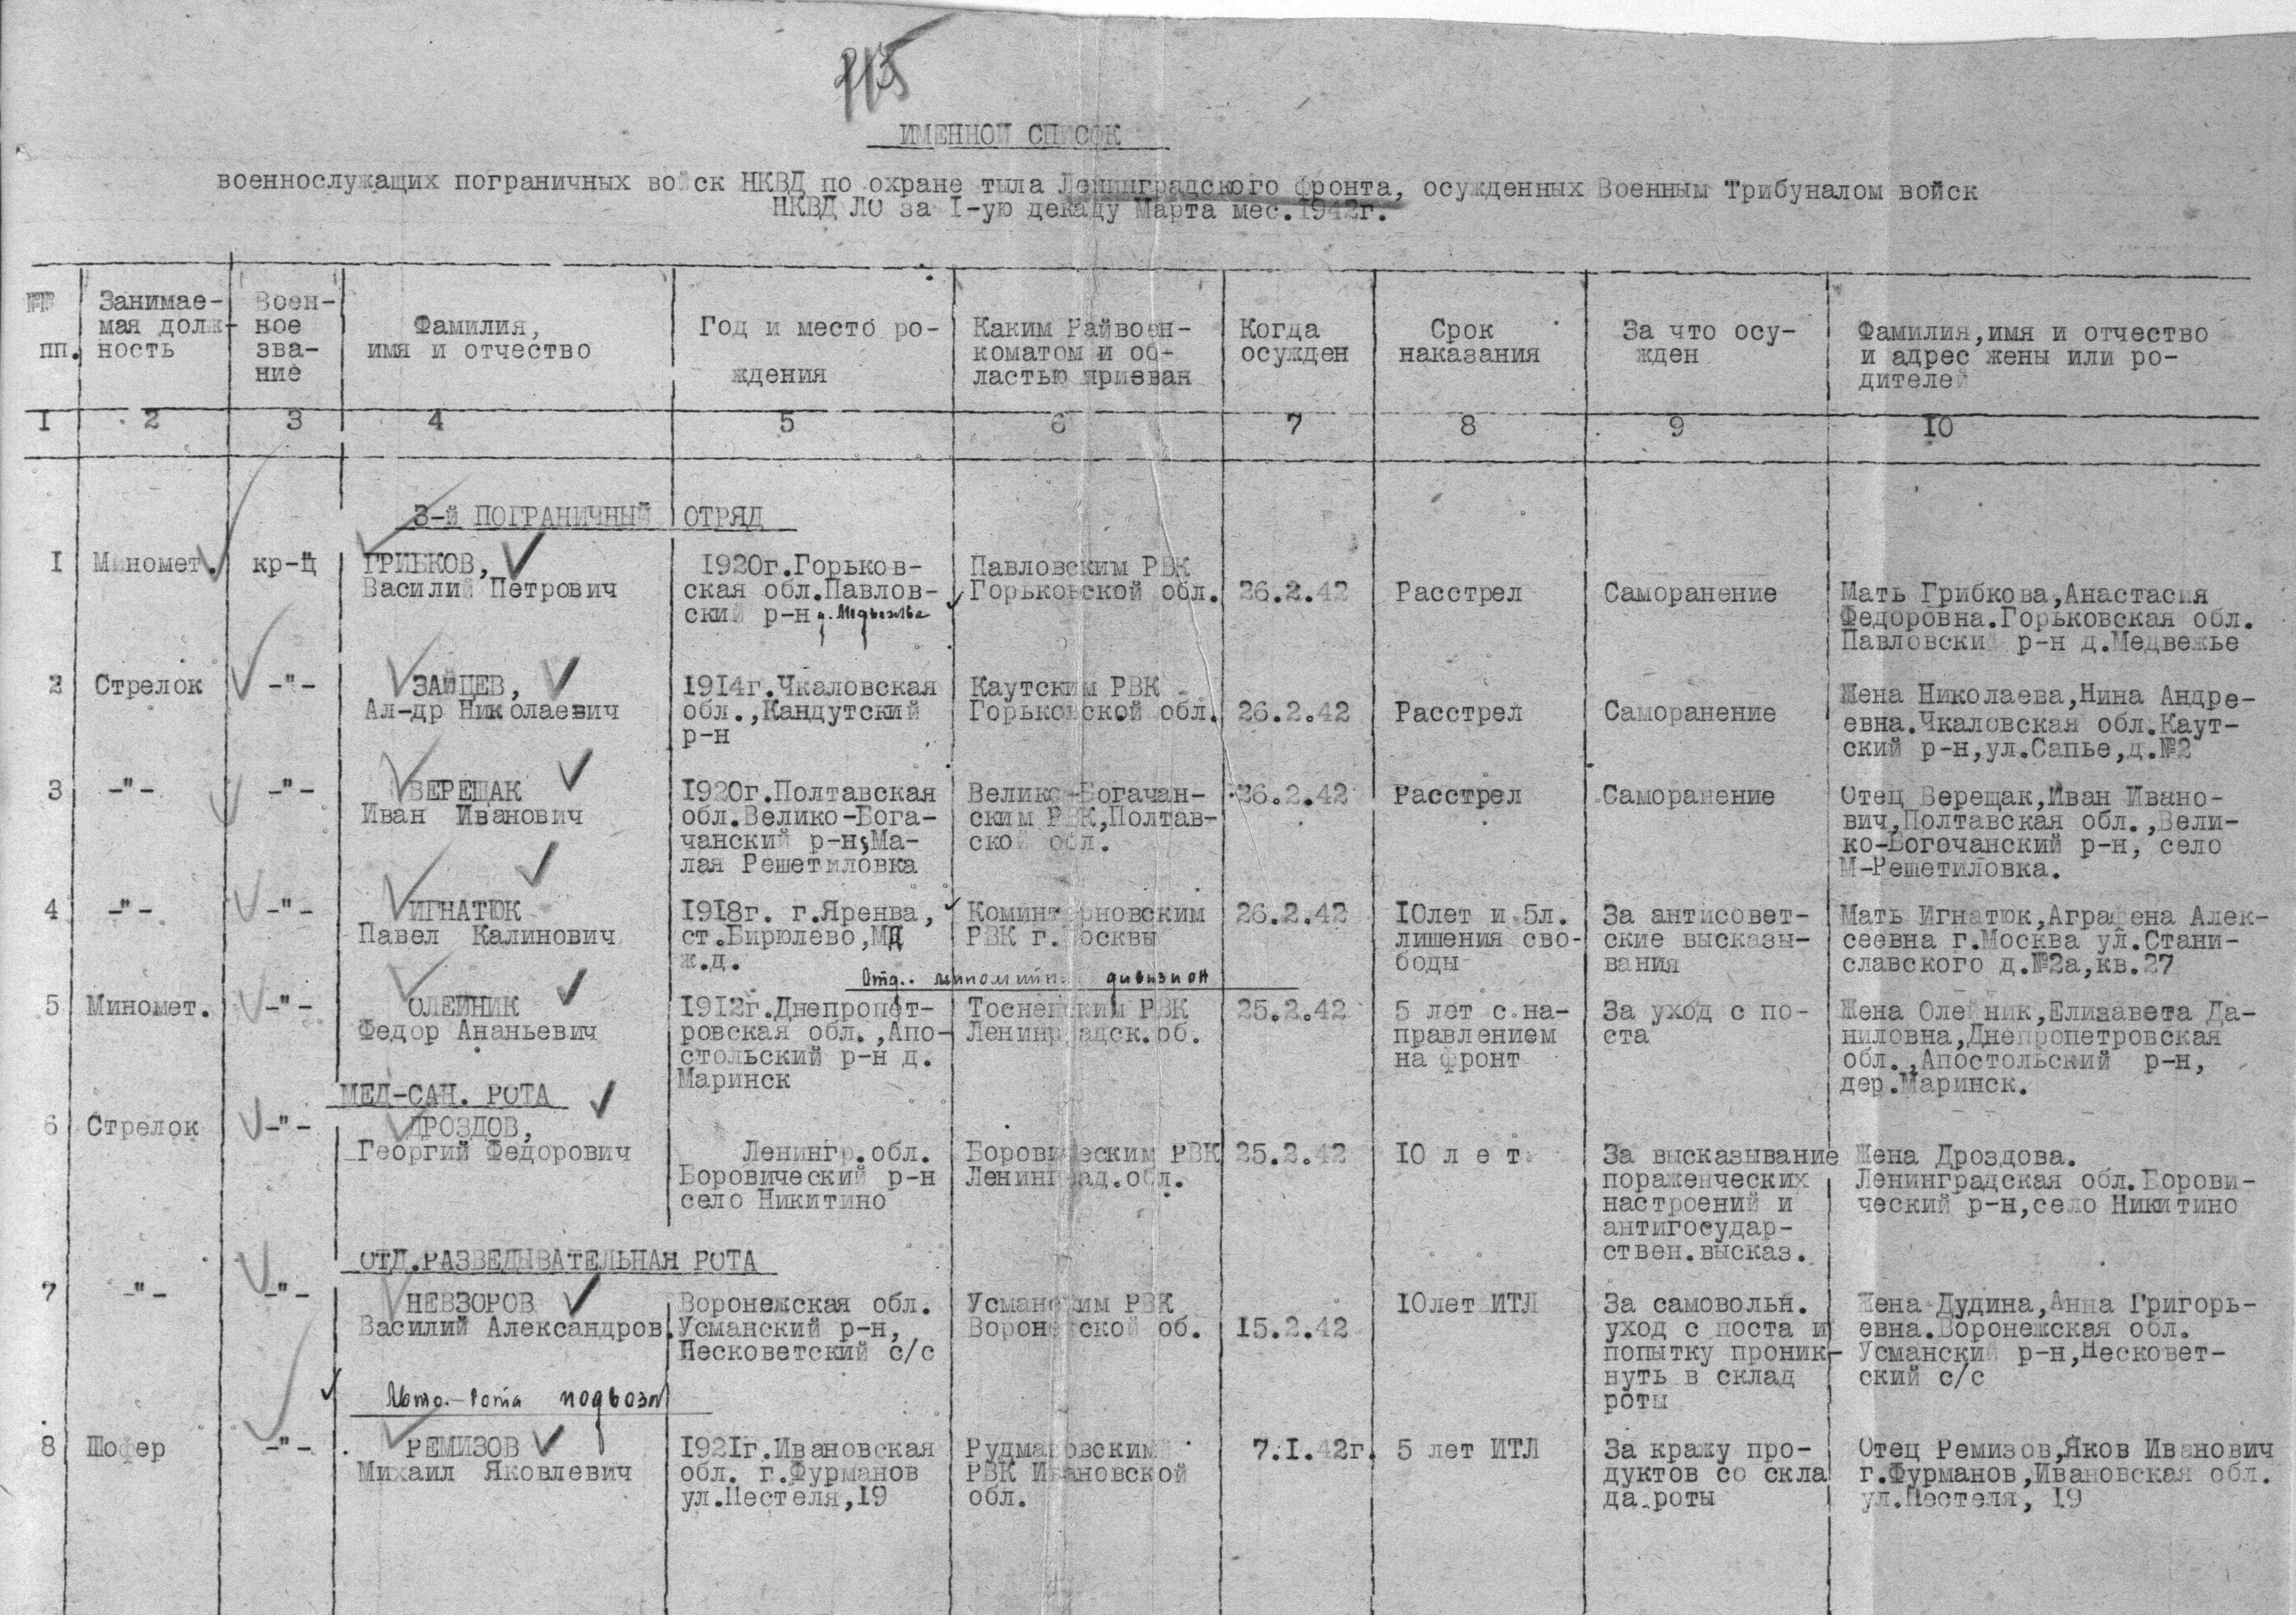 215
ИМЕННОЙ СПИСОК
военнослужащих пограничных войск НКВД по охране тыла Ленинградского фронта, осужденных Военным Трибуналом войск
НКВД ЛО за I-ую декаду Марта мес.1942г.
№№ пп.
Занимае-
мая долж-
ность
Воен-
ное
зва-
ние
Фамилия,
имя и отчество
Год и место ро-
ждения
Каким Райвоен-
коматом и об-
ластью призван
Когда
осужден
Срок
наказания
За что осу-
жден
Фамилия,имя и отчество
и адрес жены или ро-
дителей
I 2 3 4 5 6 7 8 9 IO
3-й ПОГРАНИЧНЫЙ ОТРЯД
I
Миномет.
кр-ц
ГРИБКОВ,
Василий Петрович
1920г.Горьков-
ская обл.Павлов-
ский р-н д. Медвежье
Павловским РВК
Горьковской обл.
26.2.42
Расстрел
Саморанение
Мать Грибкова,Анастасия
Федоровна.Горьковская обл.
Павловский р-н д.Медвежье
2
Стрелок
-"-
ЗАЙЦЕВ,
Ал-др Николаевич
1914г.Чкаловская
обл.,Кандутский
р-н
Каутским РВК
Горьковской обл.
26.2.42
Расстрел
Саморанение
Жена Николаева,Нина Андре-
евна.Чкаловская обл.Каут-
ский р-н,ул.Сапье,д.№2
3
-"-
-"-
ВЕРЕЩАК
Иван Иванович
1920г.Полтавская
обл.Велико-Бога-
чанский р-н,Ма-
лая Решетиловка
Велико-Богачан-
ским РВК,Полтав-
ской обл.
26.2.42
Расстрел
Саморанение
Отец Верещак,Иван Ивано-
вич,Полтавская обл.,Вели-
ко-Богочанский р-н, село
М-Решетиловка.
4
-"-
-"-
ИГНАТЮК
Павел Калинович
1918г. г.Яренва,
ст.Бирюлево,МД
ж.д.
Коминтерновским
РВК г.Москвы
26.2.42
IOлет и 5л.
лишения сво-
боды
За антисовет-
ские высказы-
вания
Мать Игнатюк,Аграфена Алек-
сеевна г.Москва ул.Стани-
славского д.№2а,кв.27
Отд. минометн. дивизион
5
Миномет.
-"-
ОЛЕЙНИК
Федор Ананьевич
1912г.Днепропет-
ровская обл.,Апо-
стольский р-н д.
Маринск
Тосненским РВК
Ленинградск.об.
25.2.42
5 лет с на-
правлением
на фронт
За уход с по-
ста
Жена Олейник,Елизавета Да-
ниловна,Днепропетровская
обл.,Апостольский р-н,
дер.Маринск.
МЕД-САН. РОТА
6
Стрелок
-"-
ДРОЗДОВ,
Георгий Федорович
Ленингр.обл.
Боровический р-н
село Никитино
Боровическим РВК
Ленинград.обл.
25.2.42
IO л е т
За высказывание
пораженческих
настроений и
антигосудар-
ствен.высказ.
Жена Дроздова.
Ленинградская обл.Борови-
ческий р-н,село Никитино
ОТД.РАЗВЕДЫВАТЕЛЬНАЯ РОТА
7
-"-
-"-
НЕВЗОРОВ
Василий Александров.
Воронежская обл.
Усманский р-н,
Песковетский с/с
Усманским РВК
Воронежской об.
15.2.42
IOлет ИТЛ
За самовольн.
уход с поста и
попытку проник-
нуть в склад
роты
Жена Дудина,Анна Григорь-
евна.Воронежская обл.
Усманский р-н,Песковет-
ский с/с
Авто-рота подвоза
8
Шофер
-"-
РЕМИЗОВ
Михаил Яковлевич
1921г.Ивановская
обл. г.Фурманов
ул.Пестеля,19
РВК Ивановской
обл.
7.I.42г.
5 лет ИТЛ
За кражу про-
дуктов со скла
да роты
Отец Ремизов,Яков Иванович
г.Фурманов,Ивановская обл.
ул.Пестеля, 19